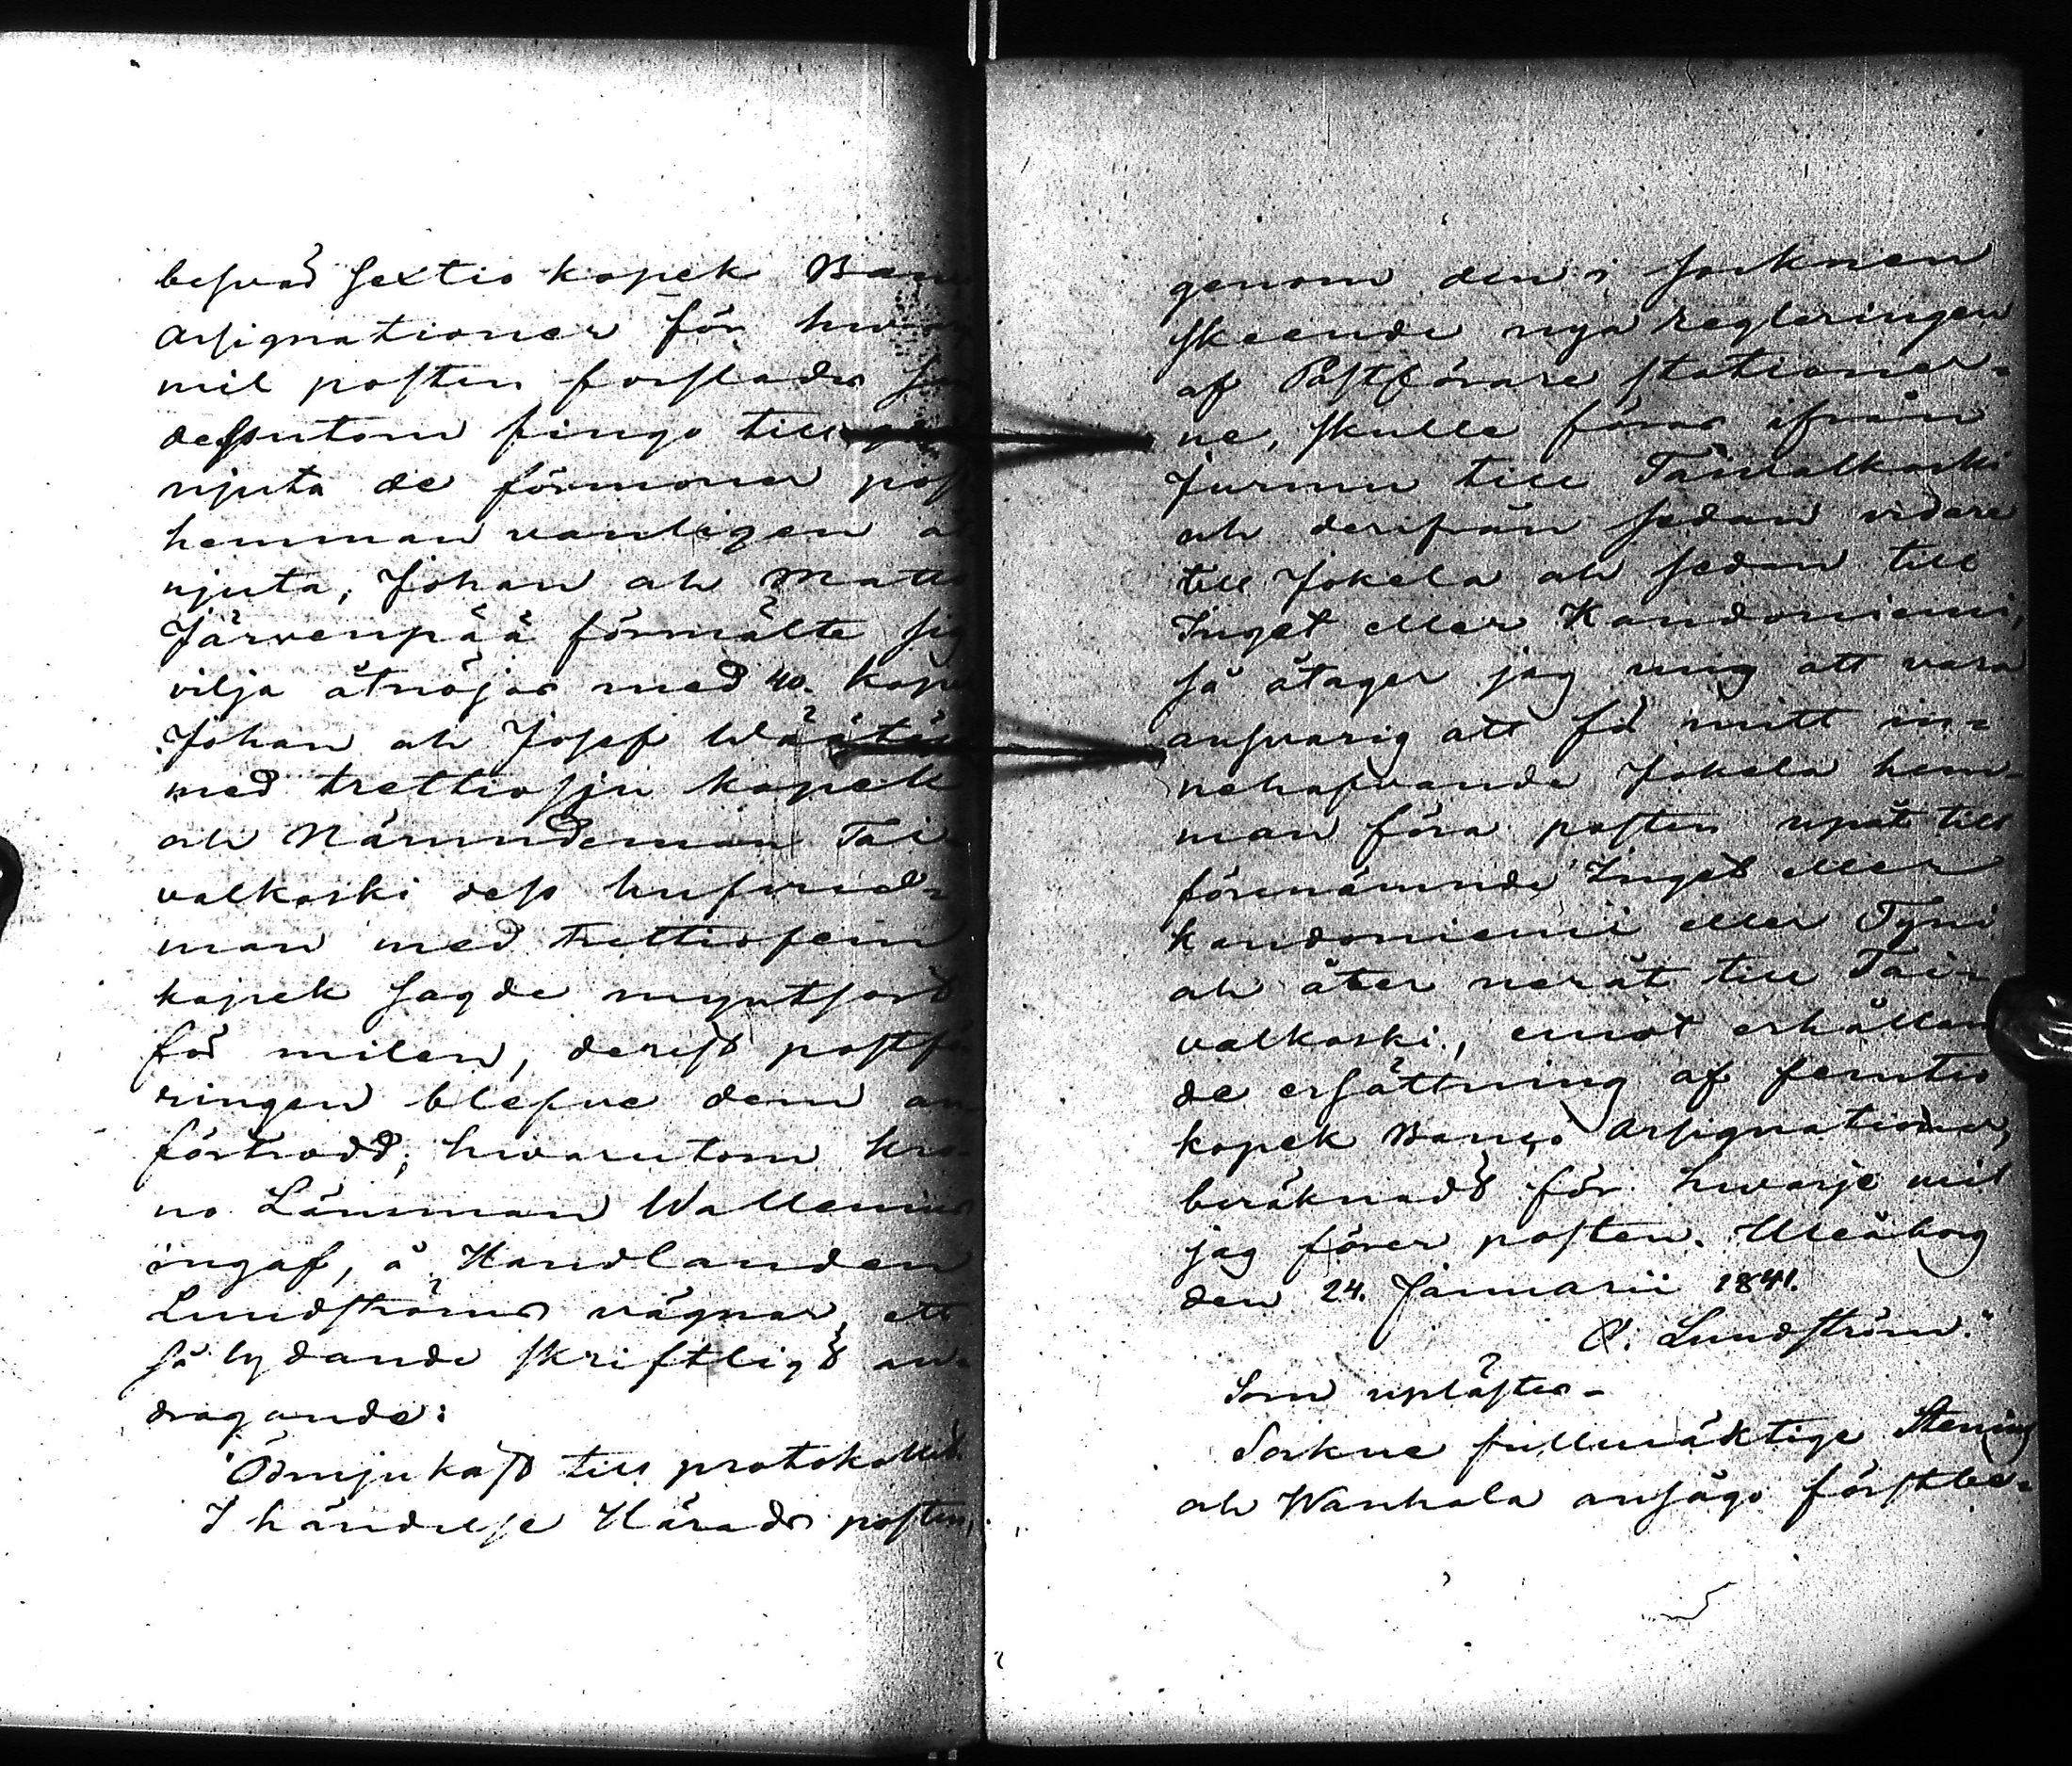 besvär sextio kopek Banco
Assignationer för hwarje
mil posten forslades samt
dessutom fingo till godo
njuta de förmoner post
hemman vanligen åt
njuta; Johan och Matts
Järvenpää förmälte sig
vilja åtnöjas med 40. kopek
Johan och Josef
med trettiosju kopek
och Nämndeman Tai-
valkoski dess husbond-
man med trettiofem
kopek sagde myntsort
för milen, derest postfö-
ringen blefve dem an-
förtrodd; hwarutom Kro-
no Länsman Wallenius
ingaf, å Handlanden
Lundströms vägnar, ett
så lydande skriftligt an-
dragande:
"Ödmjukast till protokollet.
I händelse Härads posten,
genom den i socknen
skeende nya regleringen
af Postförare stationer-
ne, skulle föras ifrån
Jurmu till Taivalkoski
och derifrån sedan vidare
till Jokela och sedan till
Inget eller Kandoniemi,
så åtager jag mig att vara
ansvarig att få mitt in-
nehafvande Jokela hem-
man föra posten upåt till
förenämnde Inget eller
Kandoniemi eller Tyni
och åter neråt till Tai-
valkoski, emot erhållan
de ersättning af femtio
kopek Banco Assignationer,
beräknadt för hwarje mil
jag förer posten. Uleåborg
den 24. Januarii 1841.
O. Lundström."
Som uplästes.
Sockne fullmäktige Stening
och Wanhala ansågo förstbe-